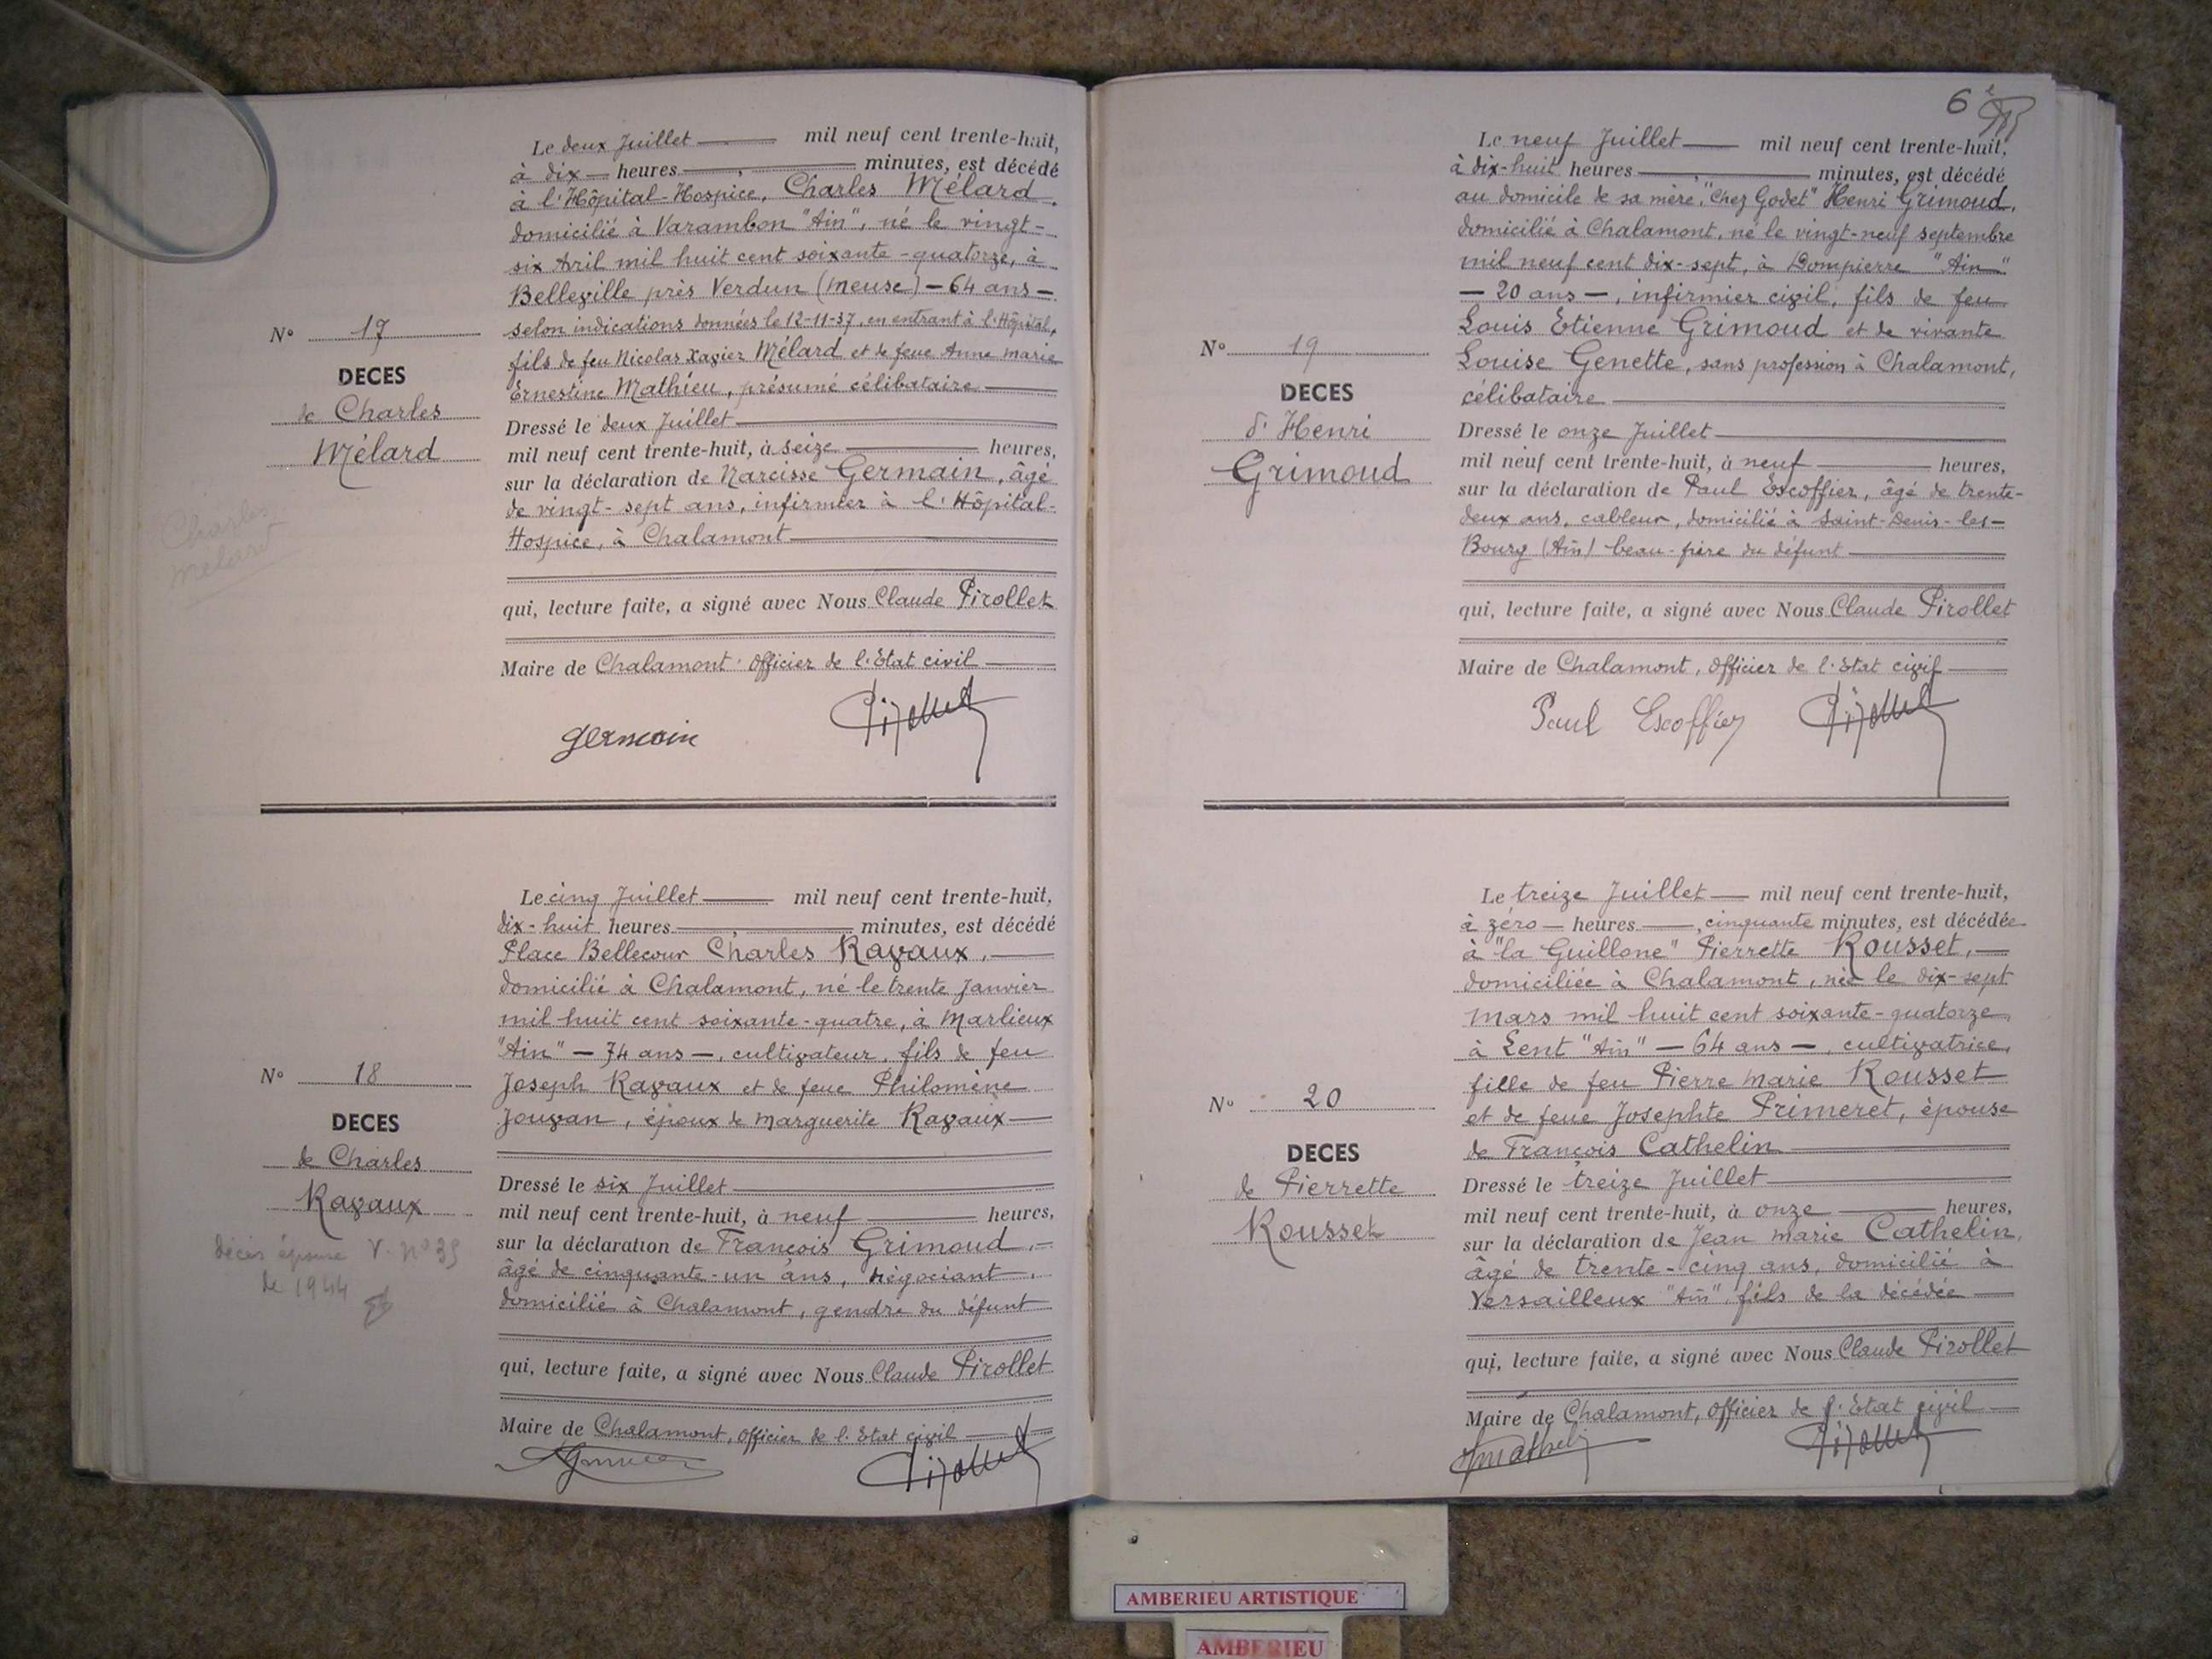 Le deux Juillet mil neuf cent trente-huit,
à dix heures minutes, est décédé
à l'Hôpital-Hospice, Charles Mélard.
domicilié à Varambon "Ain", né le vingt-
six Avril mil huit cent soixante-quatorze, à
Belleville près Verdun (Meuse) — 64 ans —
selon indications données le 12-11-37, en entrant à l'Hôpital,
fils de feu Nicolas Xavier Mélard et de feue Anne Marie
Ernestine Mathieu, présumé célibataire
N° 17
DECES
de Charles
Mélard
Charles
Mélard
Dressé le deux Juillet
mil neuf cent trente-huit, à seize heures,
sur la déclaration de Narcisse Germain, âgé
de vingt-sept ans, infirmier à l'Hôpital-
Hospice, à Chalamont
qui, lecture faite, a signé avec Nous Claude Pirollet
Maire de Chalamont. Officier de l'Etat civil
germain Pirollet
Le cinq Juillet mil neuf cent trente-huit,
dix-huit heures minutes, est décédé
Place Bellecour Charles Ravaux,
domicilié à Chalamont, né le trente Janvier
mil huit cent soixante-quatre, à Marlieux
"Ain" — 74 ans —, cultivateur, fils de feu
Joseph Ravaux et de feue Philomène
Jouvan, époux de Marguerite Ravaux
N° 18
DECES
de Charles
Ravaux
décès épouse V. n° 35
de 1944
Dressé le six Juillet
mil neuf cent trente-huit, à neuf heures,
sur la déclaration de François Grimoud,
âgé de cinquante-un ans, négociant,
domicilié à Chalamont, gendre du défunt
qui, lecture faite, a signé avec Nous Claude Pirollet
Maire de Chalamont, Officier de l'Etat civil
Pirollet
6
Le neuf Juillet mil neuf cent trente-huit,
à dix-huit heures minutes, est décédé
au domicile de sa mère, "Chez Godet" Henri Grimoud,
domicilié à Chalamont, né le vingt-neuf septembre
mil neuf cent dix-sept, à Dompierre "Ain"
— 20 ans —, infirmier civil, fils de feu
Louis Etienne Grimoud et de vivante
Louise Genette, sans profession à Chalamont,
célibataire
N° 19
DECES
d'Henri
Grimoud
Dressé le onze Juillet
mil neuf cent trente-huit, à neuf heures,
sur la déclaration de Paul Escoffier, âgé de trente-
deux ans, cableur, domicilié à Saint-Denis-les-
Bourg (Ain) beau-frère du défunt
qui, lecture faite, a signé avec Nous Claude Pirollet
Maire de Chalamont, Officier de l'Etat civil
Paul Escoffier Pirollet
Le treize Juillet mil neuf cent trente-huit,
à zéro heures, cinquante minutes, est décédée
à "la Guillone" Pierrette Rousset,
domiciliée à Chalamont, née le dix-sept
Mars mil huit cent soixante-quatorze,
à Lent "Ain" — 64 ans —, cultivatrice,
fille de feu Pierre Marie Rousset
et de feue Josephte Primeret, épouse
de François Cathelin
N° 20
DECES
de Pierrette
Rousset
Dressé le treize Juillet
mil neuf cent trente-huit, à onze heures,
sur la déclaration de Jean Marie Cathelin,
âgé de trente-cinq ans, domicilié à
Versailleux "Ain", fils de la décédée
qui, lecture faite, a signé avec Nous Claude Pirollet
Maire de Chalamont, Officier de l'Etat civil
Pirollet
AMBERIEU ARTISTIQUE
AMBERIEU